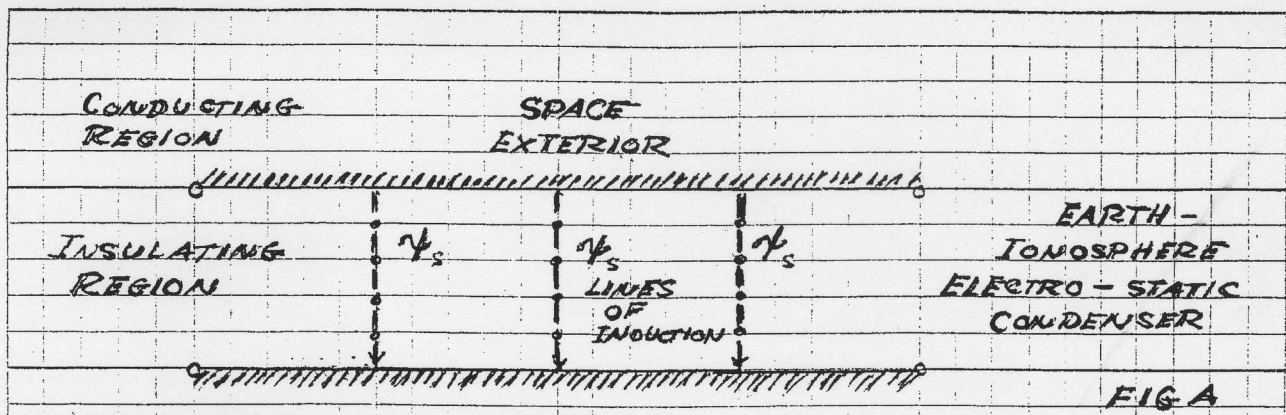 CONDUCTING
REGION
SPACE
EXTERIOR
INSULATING
REGION
ψs
ψs
ψs
LINES
OF
INDUCTION
EARTH -
IONOSPHERE
ELECTRO - STATIC
CONDENSER
FIG A